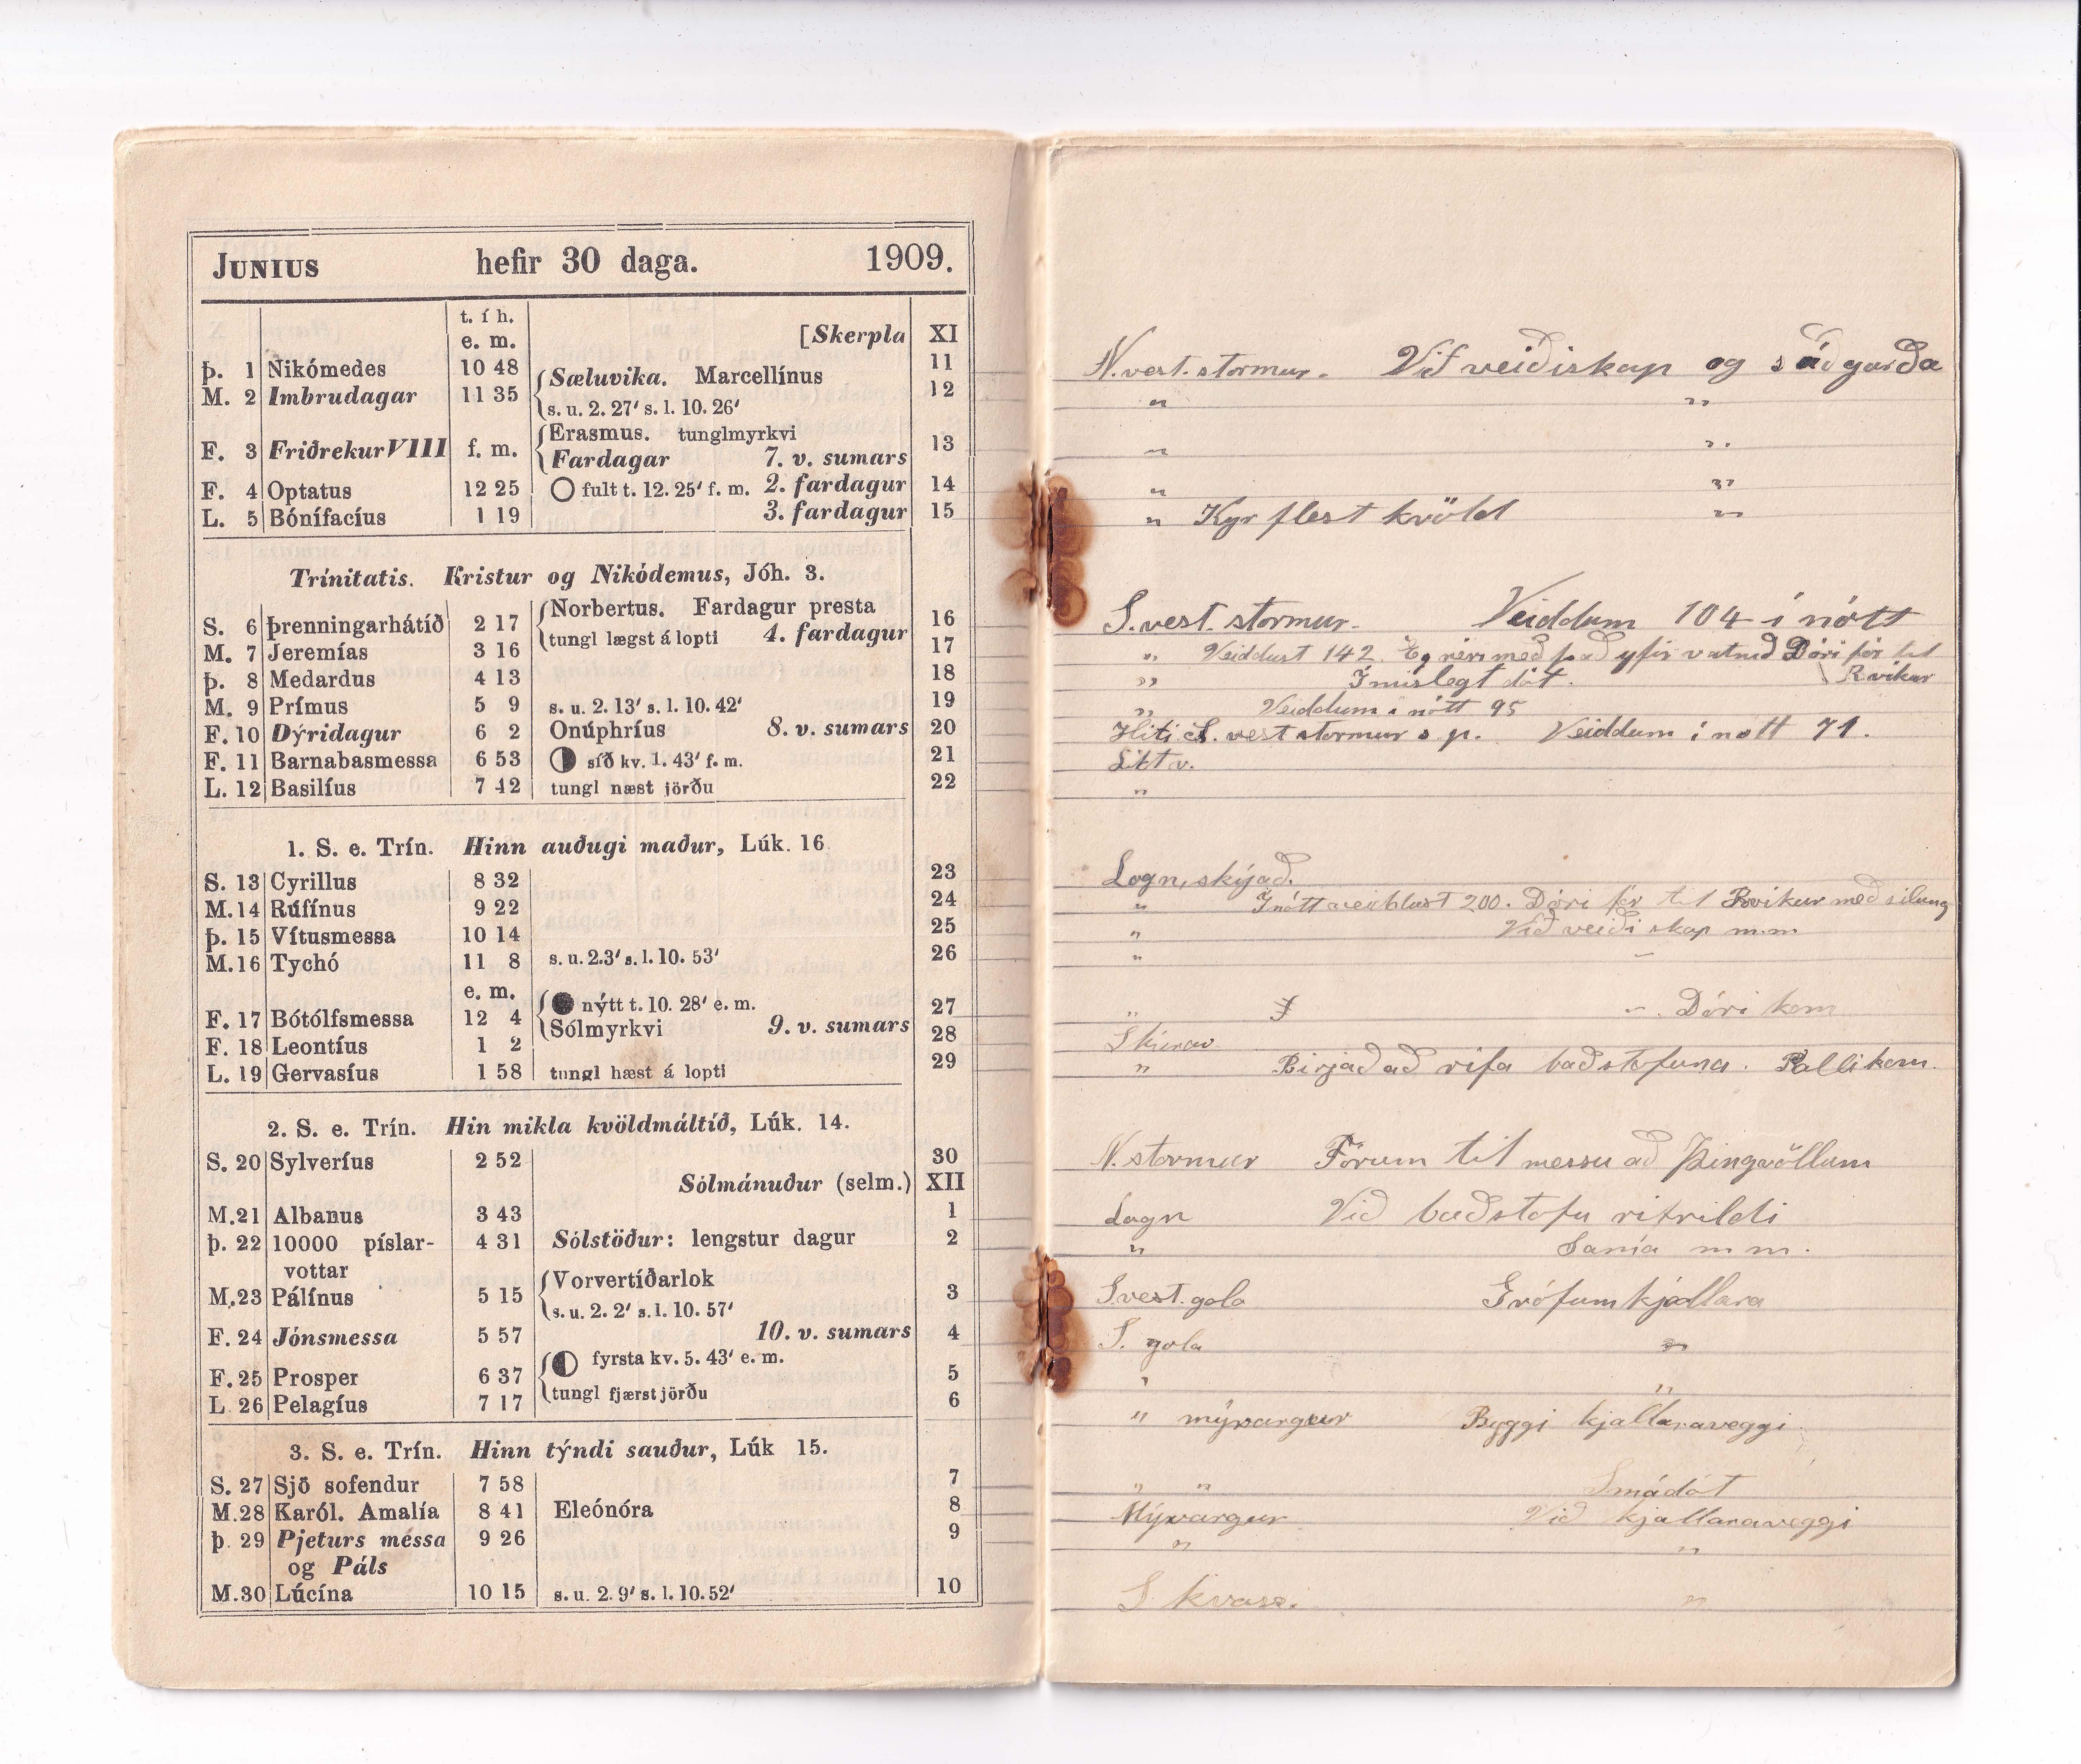 JUNIUS hefir 30 daga. 1909.
t. í h.
e. m. [Skerpla XI
Þ. 1 Nikómedes 10 48 11
M. 2 Imbrudagar 11 35 Sæluvika. Marcellínus 12
s. u. 2. 27' s. l. 10. 26'
F. 3 Friðrekur VIII f. m. Erasmus. tunglmyrkvi 13
Fardagar 7. v. sumars
F. 4 Optatus 12 25 fult t. 12. 25' f. m. 2. fardagur 14
L. 5 Bónífacíus 1 19 3. fardagur 15
Trínitatis. Kristur og Nikódemus, Jóh. 3.
S. 6 Þrenningarhátíð 2 17 Norbertus. Fardagur presta 16
tungl lægst á lopti 4. fardagur
M. 7 Jeremías 3 16 17
Þ. 8 Medardus 4 13 18
M. 9 Prímus 5 9 s. u. 2. 13' s. l. 10. 42' 19
F. 10 Dýridagur 6 2 Onúphríus 8. v. sumars 20
F. 11 Barnabasmessa 6 53 síð kv. 1. 43' f. m. 21
L. 12 Basilíus 7 42 tungl næst jörðu 22
1. S. e. Trín. Hinn auðugi maður, Lúk. 16
S. 13 Cyrillus 8 32 23
M. 14 Rúfínus 9 22 24
Þ. 15 Vítusmessa 10 14 25
M. 16 Tychó 11 8 s. u. 2.3' s. l. 10. 53' 26
e. m. nýtt t. 10. 28' e. m.
F. 17 Bótólfsmessa 12 4 Sólmyrkvi 9. v. sumars 27
F. 18 Leontíus 1 2 28
L. 19 Gervasíus 1 58 tungl hæst á lopti 29
2. S. e. Trín. Hin mikla kvöldmáltíð, Lúk. 14.
S. 20 Sylveríus 2 52 30
Sólmánuður (selm.) XII
M. 21 Albanus 3 43 1
Þ. 22 10000 píslar- 4 31 Sólstöður: lengstur dagur 2
vottar
Vorvertíðarlok
M. 23 Pálínus 5 15 s. u. 2. 2' s. l. 10. 57' 3
F. 24 Jónsmessa 5 57 10. v. sumars 4
fyrsta kv. 5. 43' e. m.
F. 25 Prosper 6 37 5
L 26 Pelagíus 7 17 tungl fjærst jörðu 6
3. S. e. Trín. Hinn týndi sauður, Lúk 15.
S. 27 Sjö sofendur 7 58 7
M. 28 Karól. Amalía 8 41 Eleónóra 8
Þ. 29 Pjeturs messa 9 26 9
og Páls
M. 30 Lúcína 10 15 s. u. 2. 9' s. l. 10. 52' 10
N. vest. stormur. Við veiðiskap og sáðgarða
" "
" "
" "
" Kyr flest kvöld "
S. vest. stormur. Veiddum 104 í nótt
" Veiddust 142. Eg réri með það yfir vatnið Dóri fór til
" Ímislegt dót. Rvikur
" Veiddum í nótt 95
Hiti S. vest stormur s. p. Veiddum í nott 71.
"
Logn, skýað.
" Í nótt veiddust 200. Dóri fór til Rvikur með silung
" Við veiði skap m.m
" -
" -. Dóri kom
" Birjað að rífa baðstofuna. Palli kom.
N. stormur Fórum til messu að Þingvöllum
Logn Við baðstofu rifrildi
" Sama m m.
S vest. gola Grófum kjallara
S. gola "
" "
" mývargur Byggi kjallaraveggi
" " Smádót
Mývargur Við kjallaraveggi
" "
S kvass. "